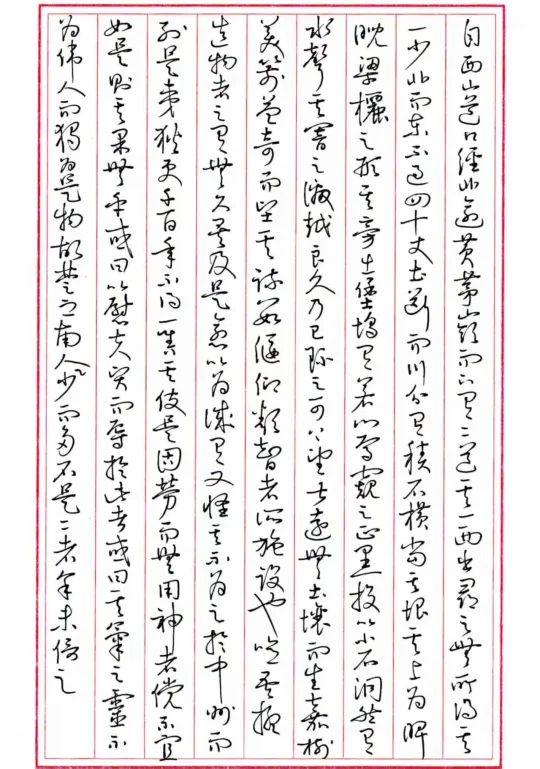 自西山道口徑北逾黃茅嶺而下有二道其一西出尋之無所得其
一少北而東不過四十丈土斷而川分有積石橫當其垠其上為睥
睨梁欐之形其旁出堡塢有若門焉窺之正黑投以小石洞然有
水聲其響之激越良久乃已環之可上望甚遠無土壤而生嘉樹
美箭益奇而堅其疏數偃仰類智者所施設也噫吾疑
造物者之有無久矣及是愈以為誠有又怪其不為之於中州而
列是夷狄更千百年不得一售其伎是固勞而無用神者儻不宜
如是則其果無乎或曰以慰夫賢而辱於此者或曰其氣之靈不
為偉人而獨為是物故楚之南人少而多石是二者余未信之